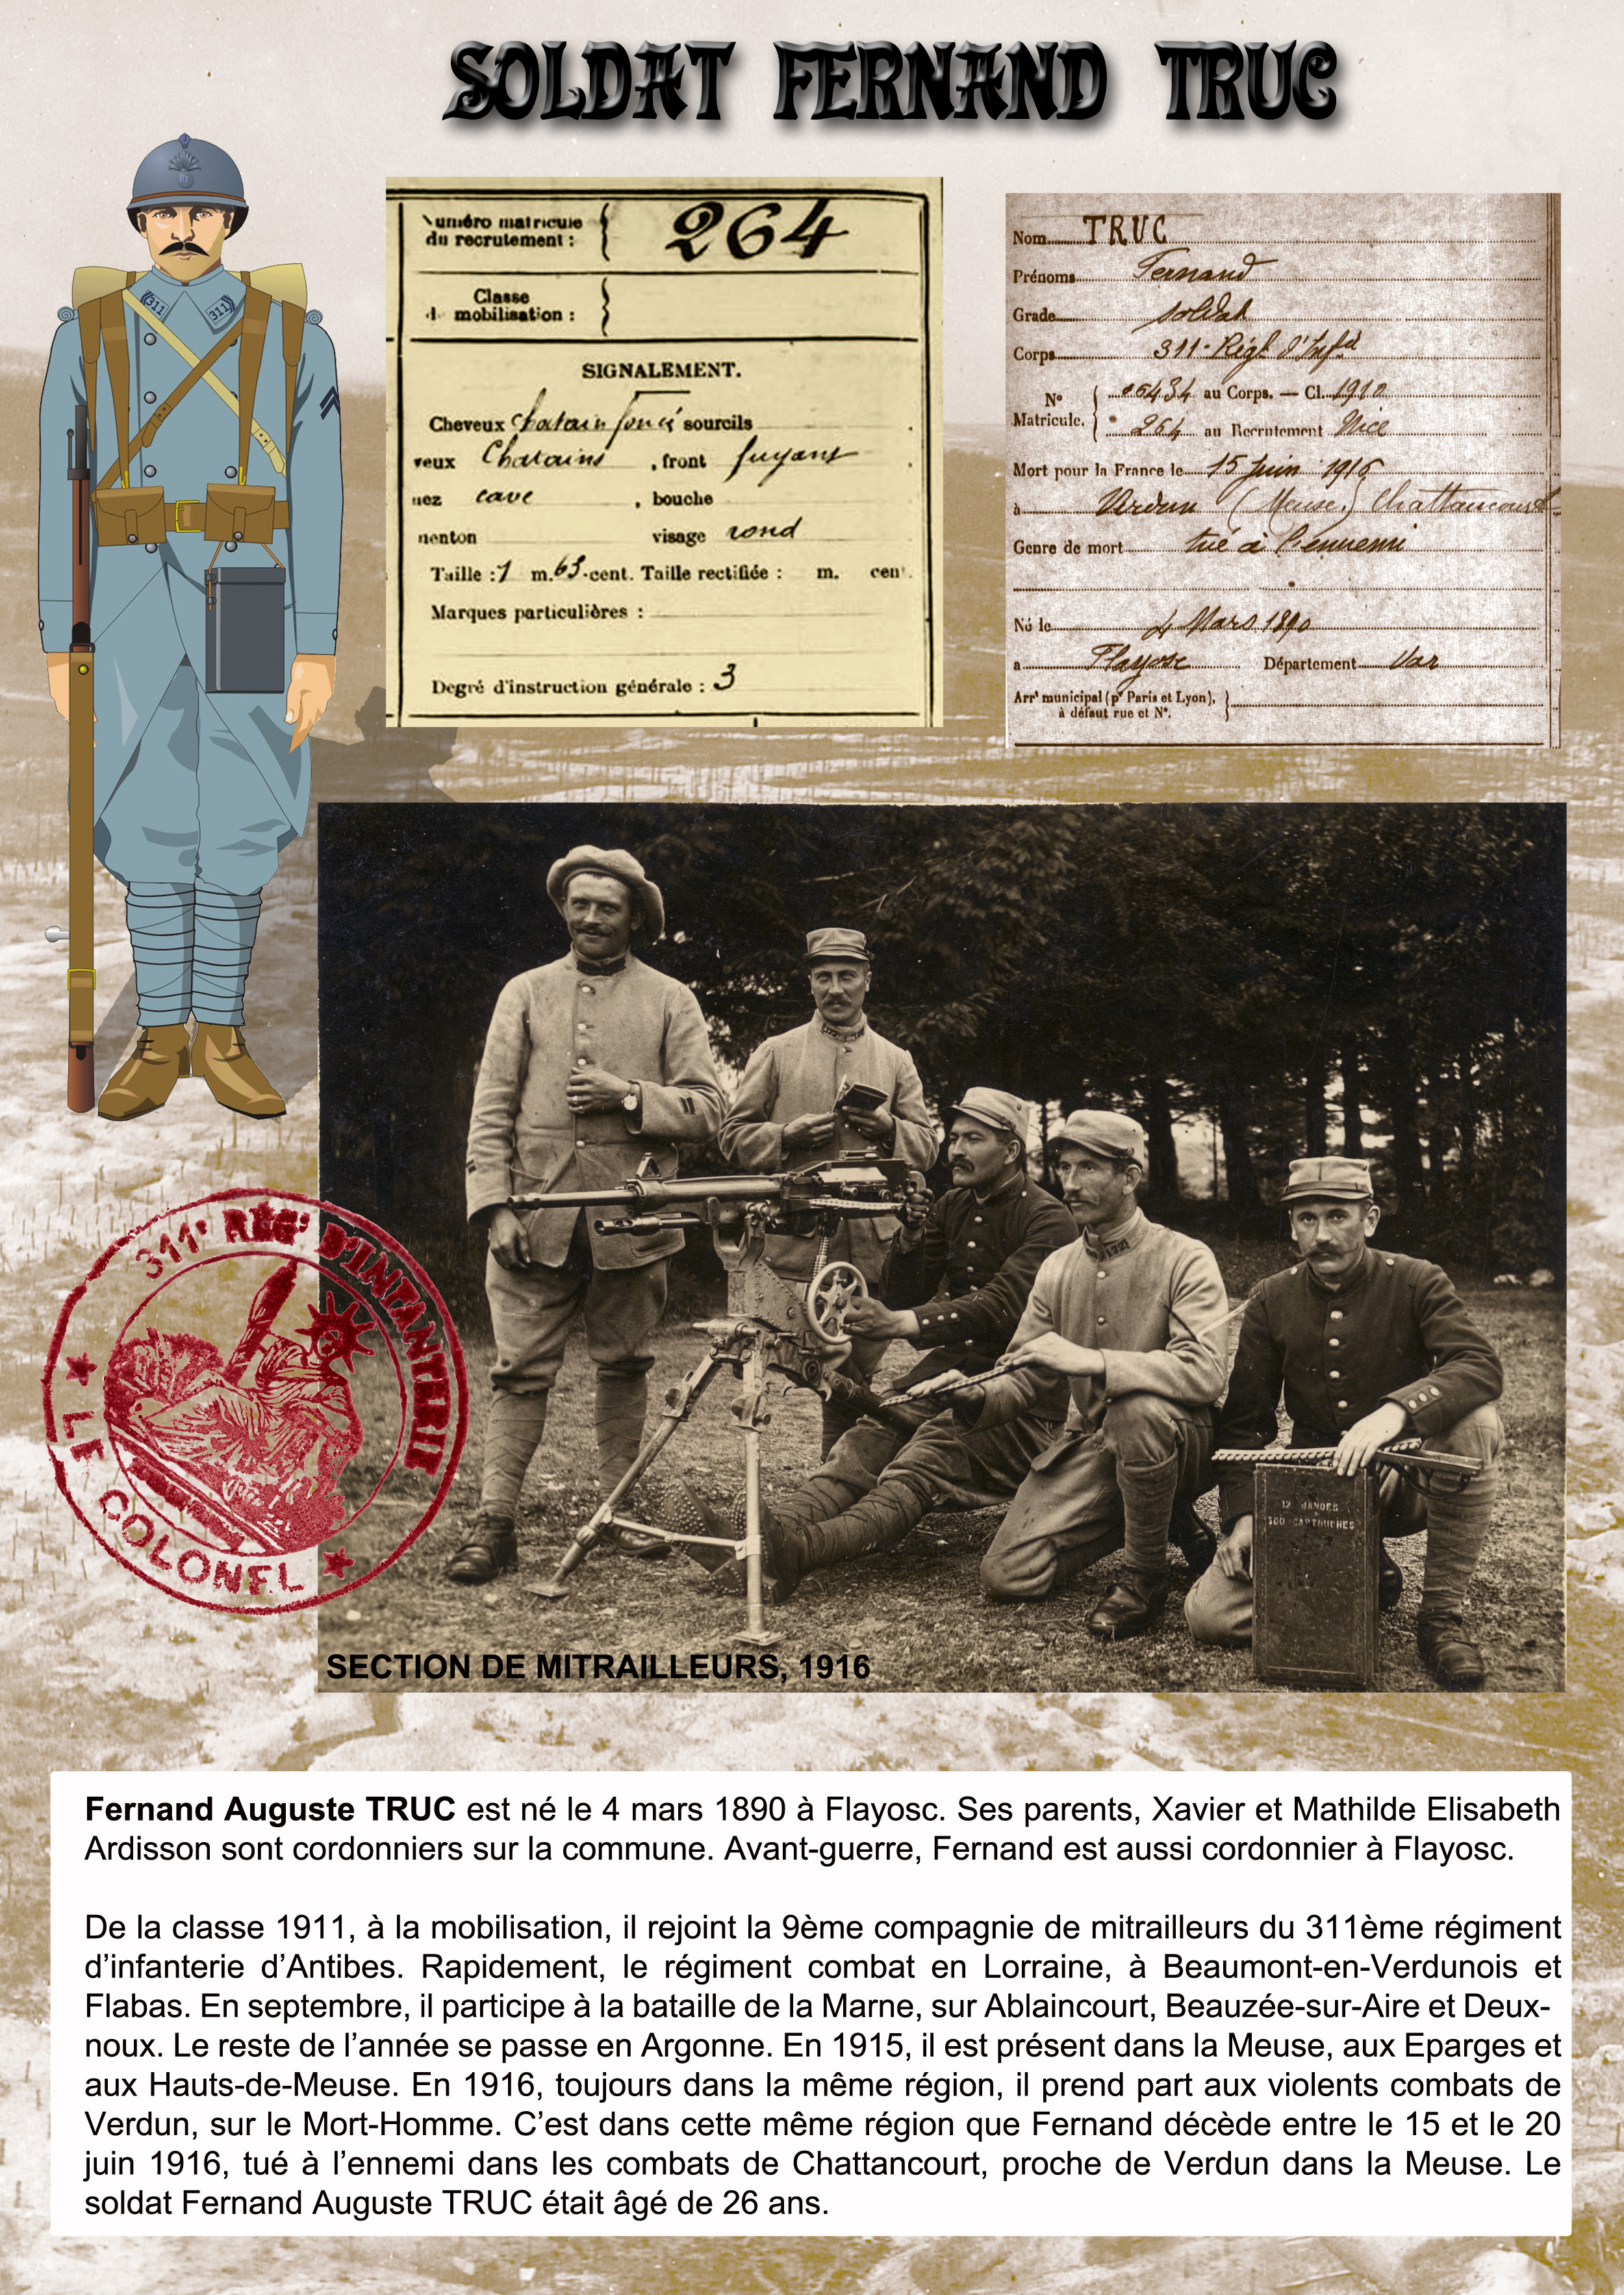 SOLDAT FERNAND TRUC
311 311
Numéro matricule
du recrutement :
264
Classe
de mobilisation :
SIGNALEMENT.
Cheveux Chatain foncé sourcils
yeux Chatains , front fuyant
nez cave , bouche
menton visage rond
Taille : 1 m. 63 cent. Taille rectifiée : m. cent.
Marques particulières :
Degré d'instruction générale : 3
Nom TRUC
Prénoms Fernand
Grade soldat
Corps 311e Régt d'Infie
No
Matricule.
05434 au Corps. — Cl. 1910
264 au Recrutement Nice
Mort pour la France le 15 juin 1916
à Verdun (Meuse) Chattancourt
Genre de mort tué à l'ennemi
Né le 4 Mars 1890
à Flayosc Département Var
Arrt municipal (pr Paris et Lyon),
à défaut rue et No.
12 BANDES
300 CARTOUCHES
311e RÉGt D'INFANTERIE
LE COLONEL
SECTION DE MITRAILLEURS, 1916
Fernand Auguste TRUC est né le 4 mars 1890 à Flayosc. Ses parents, Xavier et Mathilde Elisabeth
Ardisson sont cordonniers sur la commune. Avant-guerre, Fernand est aussi cordonnier à Flayosc.
De la classe 1911, à la mobilisation, il rejoint la 9ème compagnie de mitrailleurs du 311ème régiment
d'infanterie d'Antibes. Rapidement, le régiment combat en Lorraine, à Beaumont-en-Verdunois et
Flabas. En septembre, il participe à la bataille de la Marne, sur Ablaincourt, Beauzée-sur-Aire et Deux-
noux. Le reste de l'année se passe en Argonne. En 1915, il est présent dans la Meuse, aux Eparges et
aux Hauts-de-Meuse. En 1916, toujours dans la même région, il prend part aux violents combats de
Verdun, sur le Mort-Homme. C'est dans cette même région que Fernand décède entre le 15 et le 20
juin 1916, tué à l'ennemi dans les combats de Chattancourt, proche de Verdun dans la Meuse. Le
soldat Fernand Auguste TRUC était âgé de 26 ans.